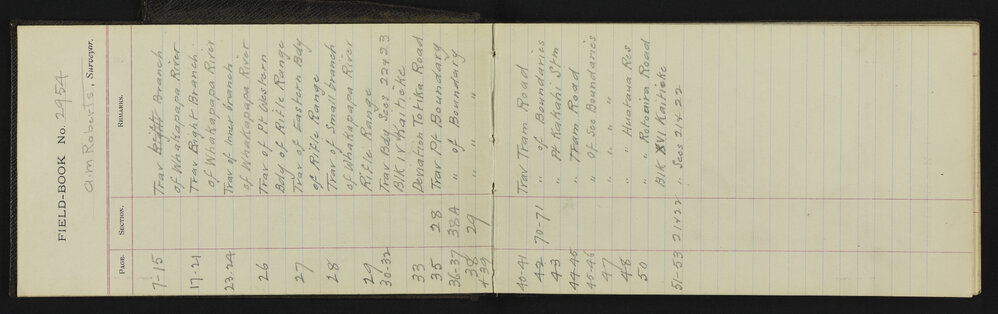 FIELD-BOOK No. 2954
A M Roberts, Surveyor.
PAGE. SECTION. REMARKS.
7-15 Trav Right Branch
of Whakapapa River
17-21 Trav Right Branch
of Whakapapa River
23-24 Trav of inner branch
of Whakapapa River
26 Trav of Pt Western
Bdy of Rifle Range
27 Trav of Eastern Bdy
of Rifle Range
28 Trav of Small branch
of Whakapapa River
29 Rifle Range
30-32 Trav Bdy Secs. 22423
Blk IV Kaitieke
33 Deviation Totika Road
35 28 Trav Pt Boundary
36-37 38A " of Boundary
38 29 " "
+39
40-41 Trav Tram Road
42 70-71 " of Boundaries
43 " Pt Kakahi Stm
44-45 " Tram Road
45-46 " Of Sec Boundaries
47 " " "
48 " Huataua Res
50 " Rotoaira Road
Blk XVI Kaitieke
51-53 21422 " Secs 21422